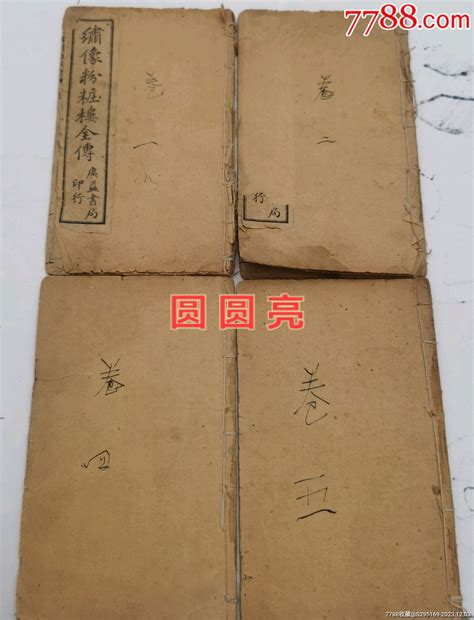 7788.com
繡像粉粧樓全傳
廣益書局
印行
卷一
卷二
局
行
圆圆亮
卷四
卷五
7788收藏@S295169-2023.12.03